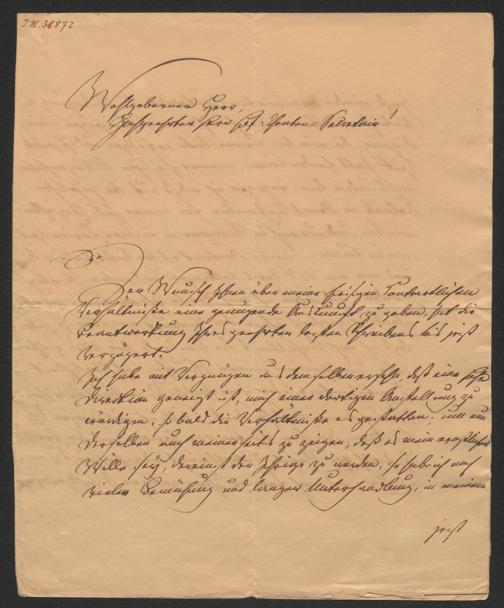 I.N. 38872
Wohlgeborner Herr,
Hochgeehrter Herr Hof-Theater-Secretair!
Den Wunsch Ihnen über meine hiesigen Contractlichen
Verhältniße eine genügende Auskunft zu geben, hat die
Beantwortung Ihres geehrten letzten Schreibens bis jetzt
verzögert.
Ich habe mit Vergnügen aus demselben ersehen, daß eine
Direction geneigt ist, mich einer dortigen Anstellung zu
würdigen, so bald die Verhältniße es gestatten; um nun
derselben auch meinerseits zu zeigen, daß es mein ernstlicher
Wille sey, dereinst der Ihrige zu werden, so habe ich nach
vieler Bemühung und langer Unterhandlung, in meinem
jetzt